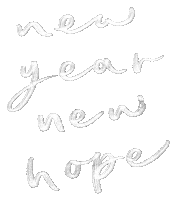 new
year
new
hope